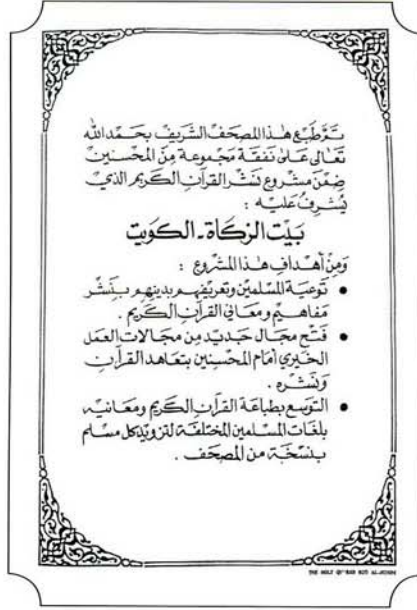 تَمَّ طَبْع هٰذا المصحَف الشَّريف بحَمْد الله
تَعَالى عَلى نَفقَة مَجْموعَة مِنَ المحْسنينْ
ضِمْنَ مشْروع نَشْر القرآن الكَريم الذي
يُشرِفُ عَليْه :
بَيْت الزكَاة - الكوَيت
وَمِنْ أهْدافِ هٰذا المشْروع :
• تَوعيَة المسْلمينْ وتَعريفهم بدينهم بنَشْر
مَفاهيمْ ومعَاني القرآن الكَريم .
• فَتْح مجَال جَديْد مِن مجَالات العمَل
الخيْري أمَام المحْسِنين بتعَاهد القرآن
وَنَشْره .
• التوَسع بطبَاعَة القرآن الكَريم ومعَانيْه
بلغَات المسْلمين المختلفَة لتزويْد كل مسْلم
بنسْخَة من المصحَف .
THE HOLY QUR'AN